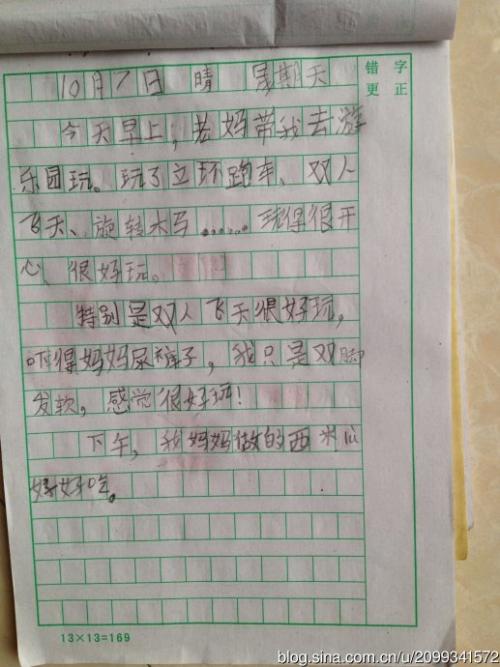 10月7日 晴 星期天
错 字
更 正
今天早上，爸妈带我去游
乐园玩。玩了立环跑车、双人
飞天、旋转木马……玩得很开
心、很好玩。
特别是双人飞天很好玩，
吓得妈妈尿裤子，我只是双脚
发软，感觉很好玩！
下午，我妈妈做的西米
好好吃。
13×13=169
blog.sina.com.cn/u/2099341572